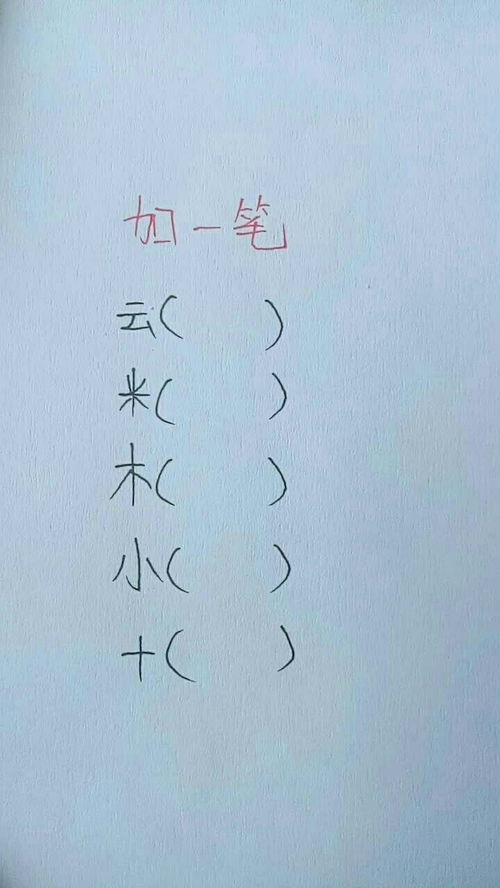 加一笔
云(  )
米(  )
木(  )
小(  )
十(  )